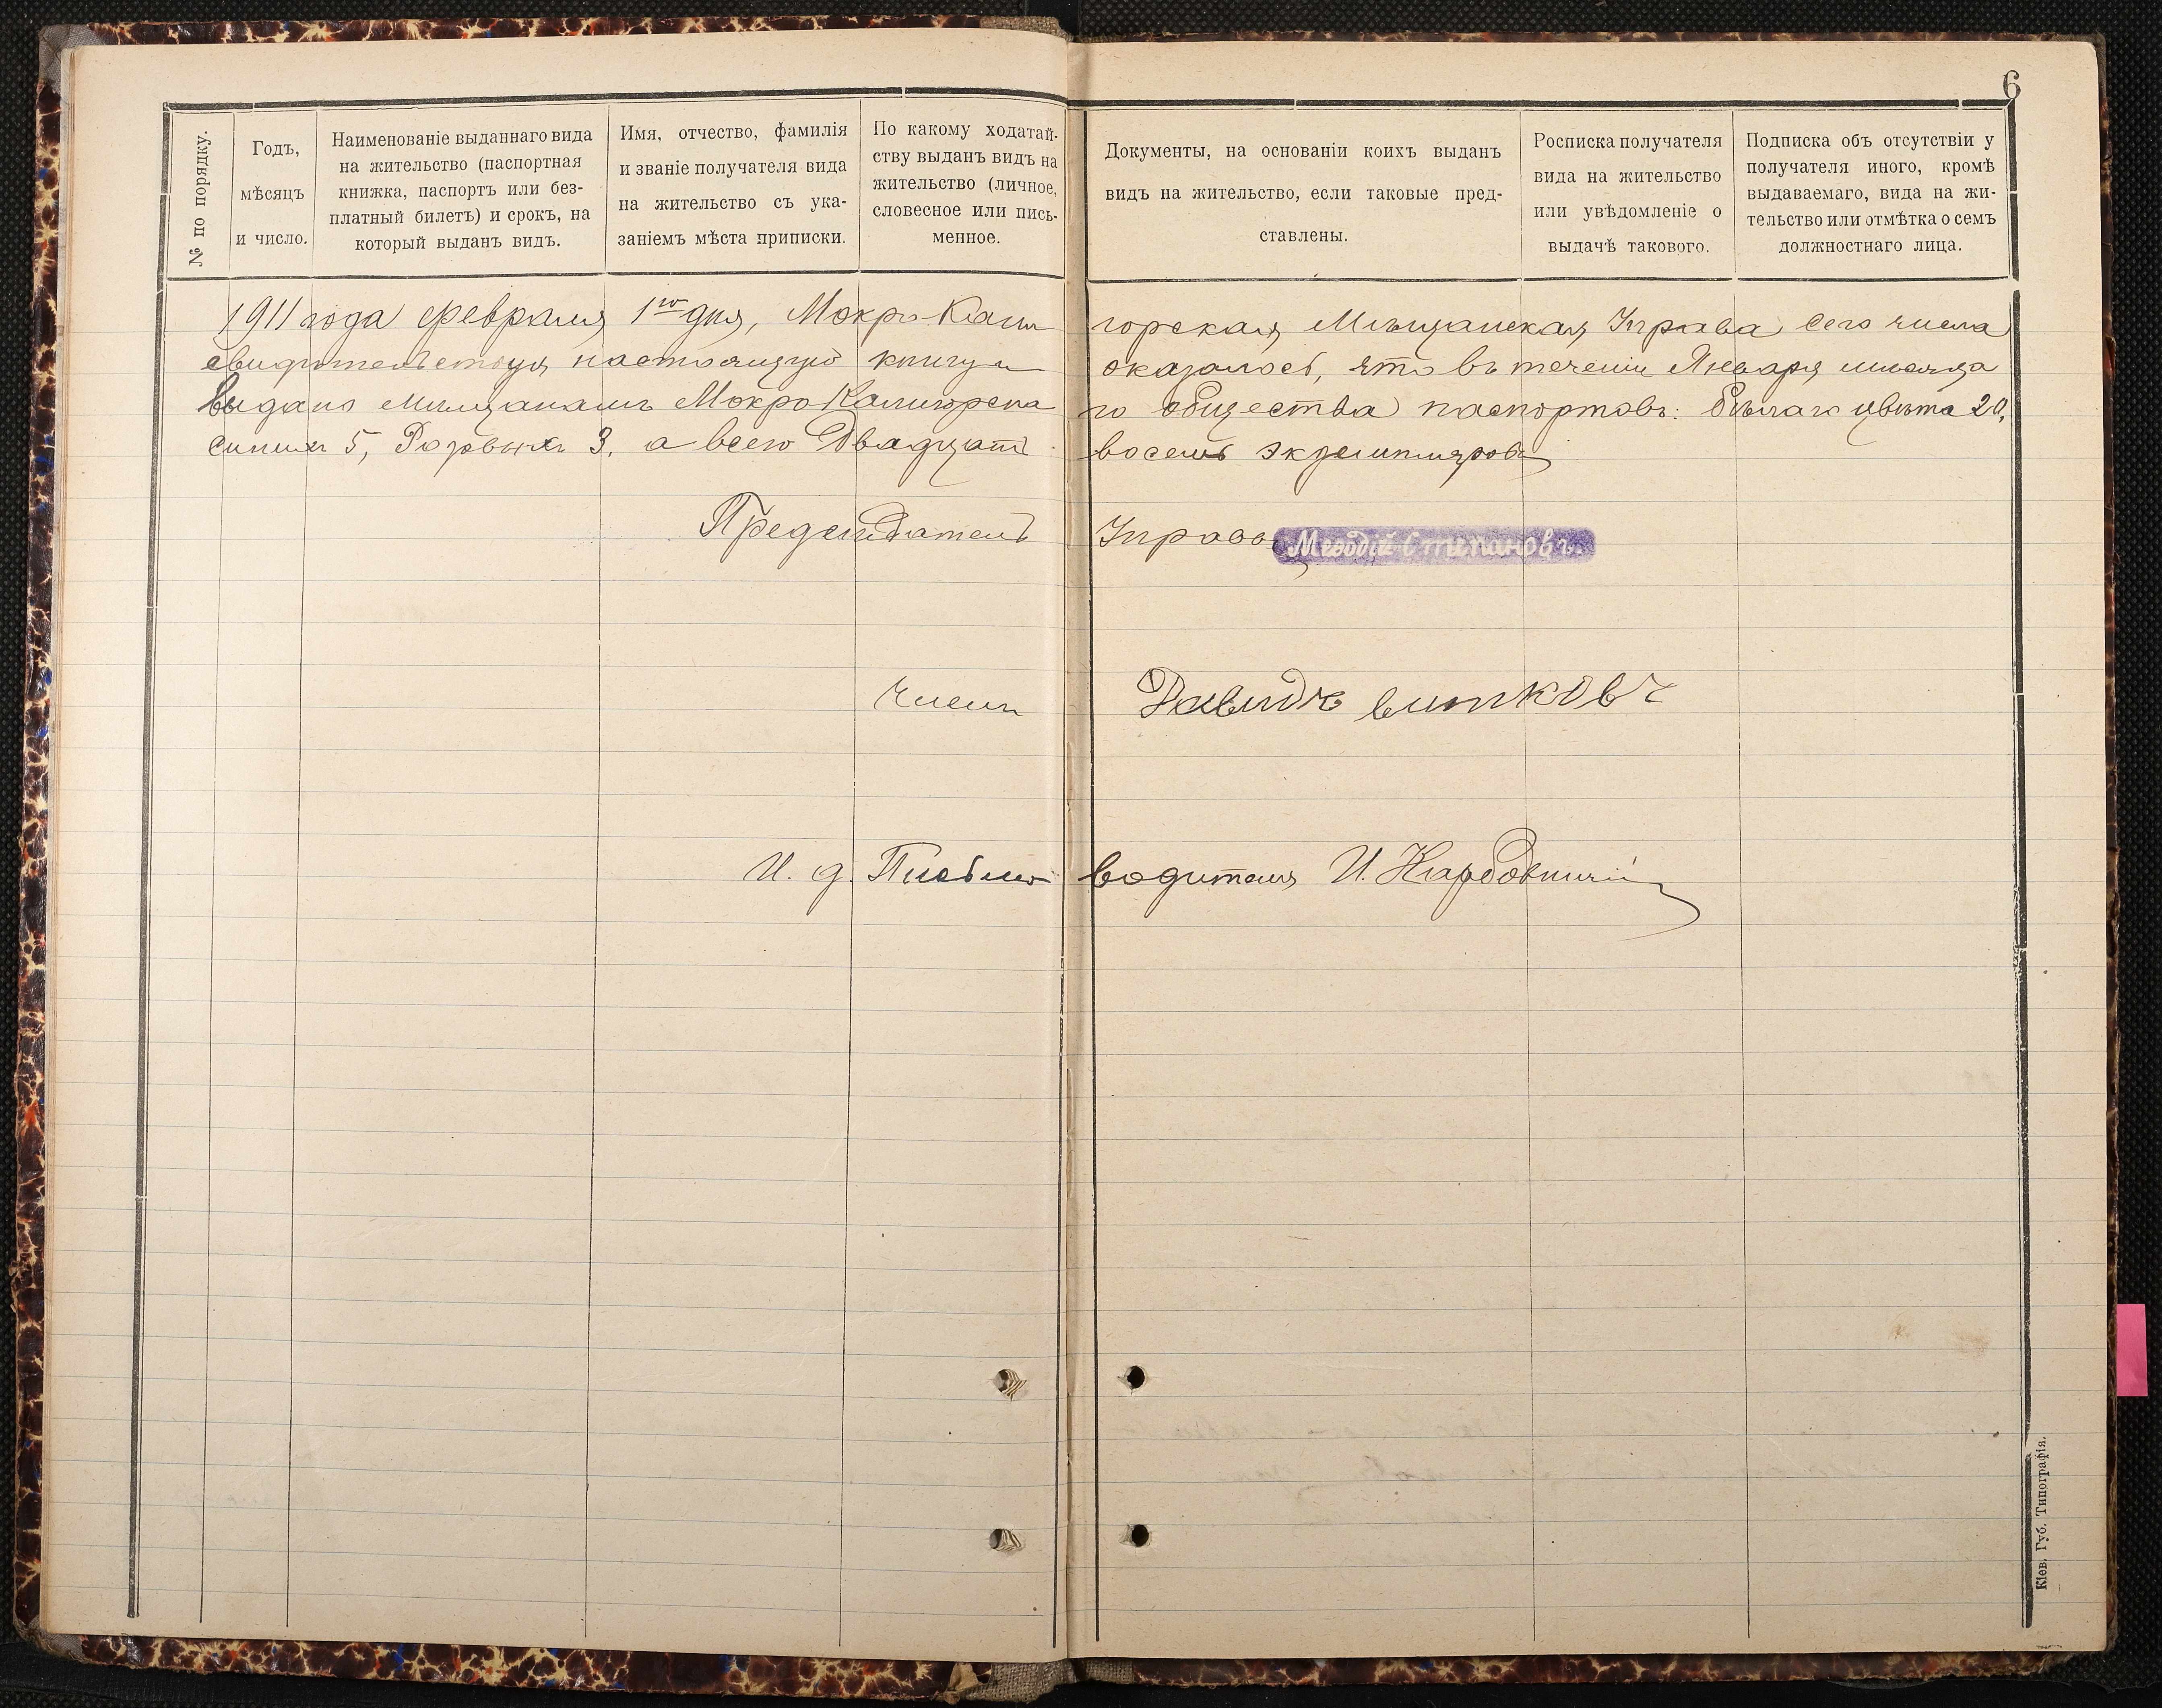 6
№ по порядку.
Годъ,
мѣсяцъ
и число.
Наименованіе выданнаго вида
на жительство (паспортная
книжка, паспортъ или без-
платный билетъ) и срокъ, на
который выданъ видъ.
Имя, отчество, фамилія
и званіе получателя вида
на жительство съ ука-
заніемъ мѣста приписки.
По какому ходатай-
ству выданъ видъ на
жительство (личное,
словесное или пись-
менное.
Документы, на основаніи коихъ выданъ
видъ на жительство, если таковые пред-
ставлены.
Росписка получателя
вида на жительство
или увѣдомленіе о
выдачѣ такового.
Подписка объ отсутствіи у
получателя иного, кромѣ
выдаваемаго, вида на жи-
тельство или отмѣтка о семъ
должностнаго лица.
1911 года февраля 1го дня, Мокро-Кали горская Мѣщанская Управа сего числа
свидѣтельствуя настоящую книгу оказалось, что въ теченіи Января мѣсяца
выдано мѣщанамъ Мокро Калигорска го общества паспортовъ: бѣлаго цвѣта 20,
синихъ 5, Розовыхъ 3, а всего Двадцать восемь экземпляровъ
Предсѣдатель Управы Меѳодій Степановъ
Членъ Давидъ
И. д. Письмо водителя И.
Кіев. Губ. Типографія.